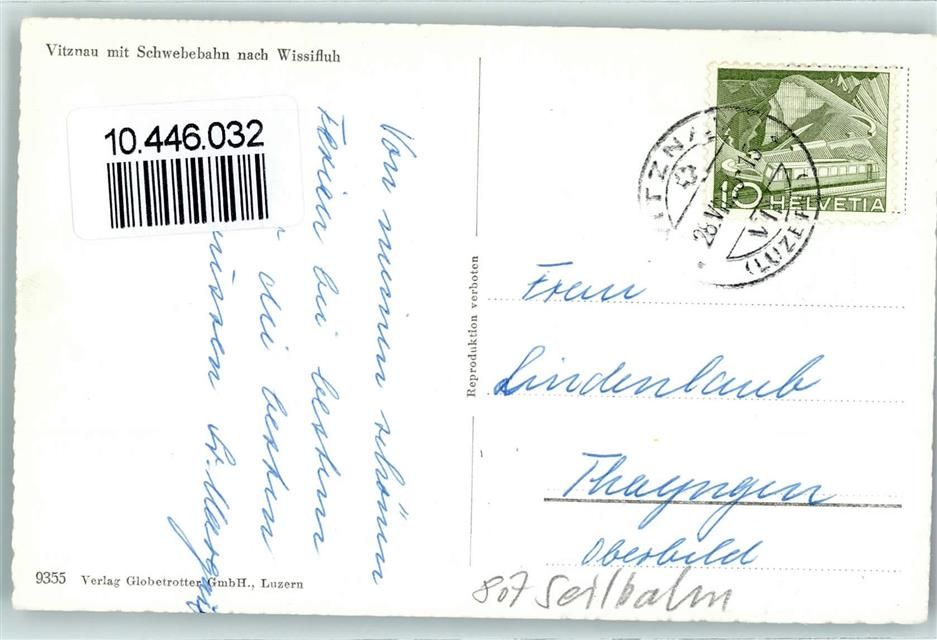 Vitznau mit Schwebebahn nach Wissifluh
10.446.032
Von meinen schönen
Ferien bei bestem
die besten
Sr. Margrit
Reproduktion verboten
10 HELVETIA
VITZNAU
28.VII
(LUZERN)
Frau
Lindenlaub
Thayngen
Oberbild
807 Seilbahn
9355 Verlag Globetrotter GmbH., Luzern